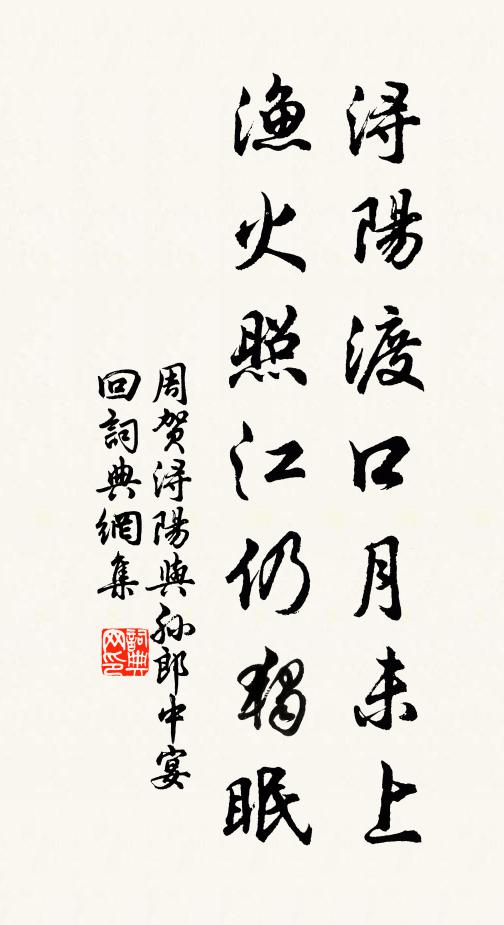 潯陽渡口月未上
漁火照江仍獨眠
周賀潯陽與孫郎中宴
回詞典網集
詞典
网印